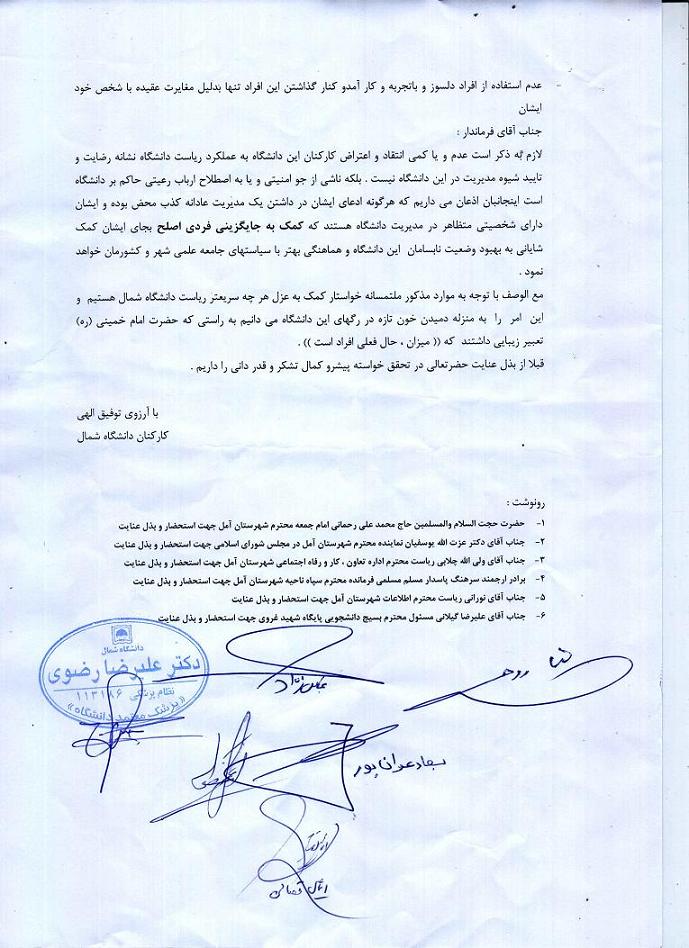 - عدم استفاده از افراد دلسوز و باتجربه و کار آمدو کنار گذاشتن این افراد تنها بدلیل مغایرت عقیده با شخص خود
ایشان
جناب آقای فرماندار :
لازم به ذکر است عدم و یا کمی انتقاد و اعتراض کارکنان این دانشگاه به عملکرد ریاست دانشگاه نشانه رضایت و
تایید شیوه مدیریت در این دانشگاه نیست . بلکه ناشی از جو امنیتی و یا به اصطلاح ارباب رعیتی حاکم بر دانشگاه
است اینجانبان اذعان می داریم که هرگونه ادعای ایشان در داشتن یک مدیریت عادانه کذب محض بوده و ایشان
دارای شخصیتی متظاهر در مدیریت دانشگاه هستند که کمک به جایگزینی فردی اصلح بجای ایشان کمک
شایانی به بهبود وضعیت نابسامان این دانشگاه و هماهنگی بهتر با سیاستهای جامعه علمی شهر و کشورمان خواهد
نمود .
مع الوصف با توجه به موارد مذکور ملتمسانه خواستار کمک به عزل هر چه سریعتر ریاست دانشگاه شمال هستیم و
این امر را به منزله دمیدن خون تازه در رگهای این دانشگاه می دانیم به راستی که حضرت امام خمینی (ره)
تعبیر زیبایی داشتند که (( میزان ، حال فعلی افراد است )) .
قبلا از بذل عنایت حضرتعالی در تحقق خواسته پیشرو کمال تشکر و قدر دانی را داریم .
با آرزوی توفیق الهی
کارکنان دانشگاه شمال
رونوشت :
۱- حضرت حجت السلام والمسلمین حاج محمد علی رحمانی امام جمعه محترم شهرستان آمل جهت استحضار و بذل عنایت
۲- جناب آقای دکتر عزت الله یوسفیان نماینده محترم شهرستان آمل در مجلس شورای اسلامی جهت استحضار و بذل عنایت
۳- جناب آقای ولی الله جلابی ریاست محترم اداره تعاون ، کار و رفاه اجتماعی شهرستان آمل جهت استحضار و بذل عنایت
۴- برادر ارجمند سرهنگ پاسدار مسلم مسلمی فرمانده محترم سپاه ناحیه شهرستان آمل جهت استحضار و بذل عنایت
۵- جناب آقای نورانی ریاست محترم اطلاعات شهرستان آمل جهت استحضار و بذل عنایت
۶- جناب آقای علیرضا گیلانی مسئول محترم بسیج دانشجویی پایگاه شهید غروی جهت استحضار و بذل عنایت
دانشگاه شمال
دکتر علیرضا رضوی
نظام پزشکی ۱۱۳۱۸۶
«پزشک معتمد دانشگاه»